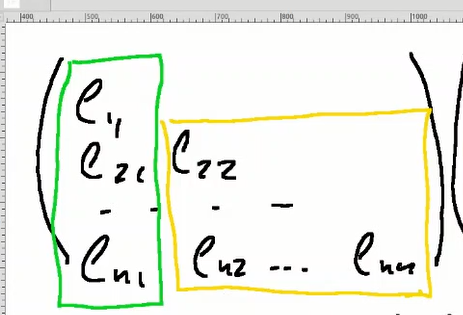 400 500 600 700 800 900 1000
( ℓ₁₁
ℓ₂₁ ℓ₂₂
- - - -
ℓₙ₁ ℓₙ₂ ... ℓₙₙ ) (